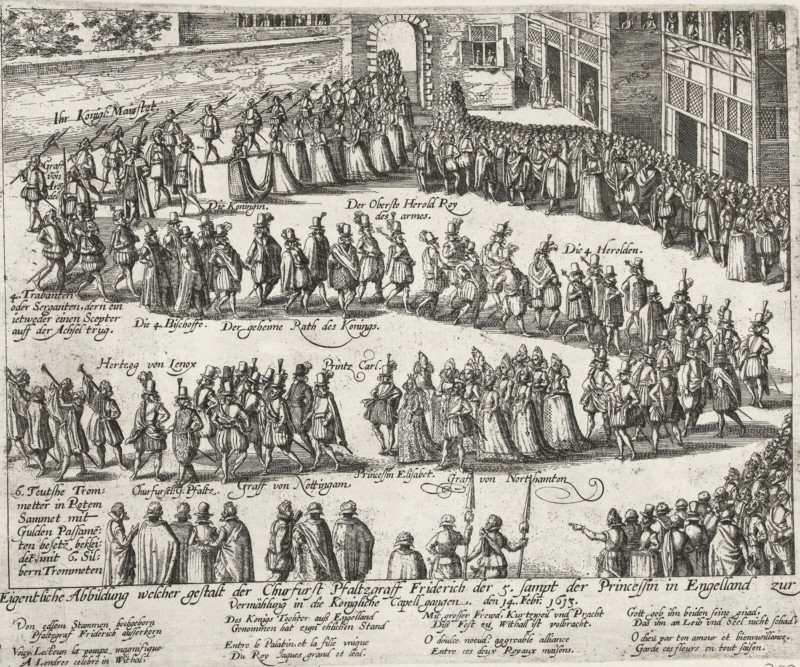 Ihr Königl. Maiestet.
Graff
von
Die Königin.
Der Oberste Herold Roy
des armes.
Die 4. Herolden.
4. Trabanten
oder Serganten, dern ein
ietweder einen Scepter
auff der Achsel trug.
Die 4. Bischoffe.
Der geheime Rath des Königs.
Hertzog von Lenox
Printz Carl.
Princessin Elisabet.
Graff von Northamton
6. Teutsche Trom¬
metter in Rotem
Sammet mit
Gulden Passame¬
ten besetz beklei¬
det mit 6. Sil¬
bern Trommeten
Churfurst. G. Pfaltz.
Graff von Nottingam
Eigentliche Abbildung welcher gestalt der Churfürst Pfaltzgraff Friderich der 5. sampt der Princessin in Engelland zur
Vermählung in die Königliche Capell gangen. den 14. Febr. 1613.
Von edlem Stammen hochgeborn
Pfaltzgraf Friderich ausserkorn
Voiez Lecteur la pompe magnifique
A Londres celebré in Withal.
Des Königs Tochter auß Engelland
Genommen hat zum ehlichen Stand
Entre le Palatin et la fille unique
Du Roy Jaques grand et leal.
Mit grosser Frewd, Kurtzweil und Pracht
Diß Fest zu Withal ist volbracht.
O doulce noeud, aggreable alliance
Entre ces deux Royaux maisons.
Gott geb ihn beiden seine gnad,
Das ihn an Leib und Seel nicht schad.
O dieu par ton amour et bienvuillance,
Garde ces fleurs en tout saison.